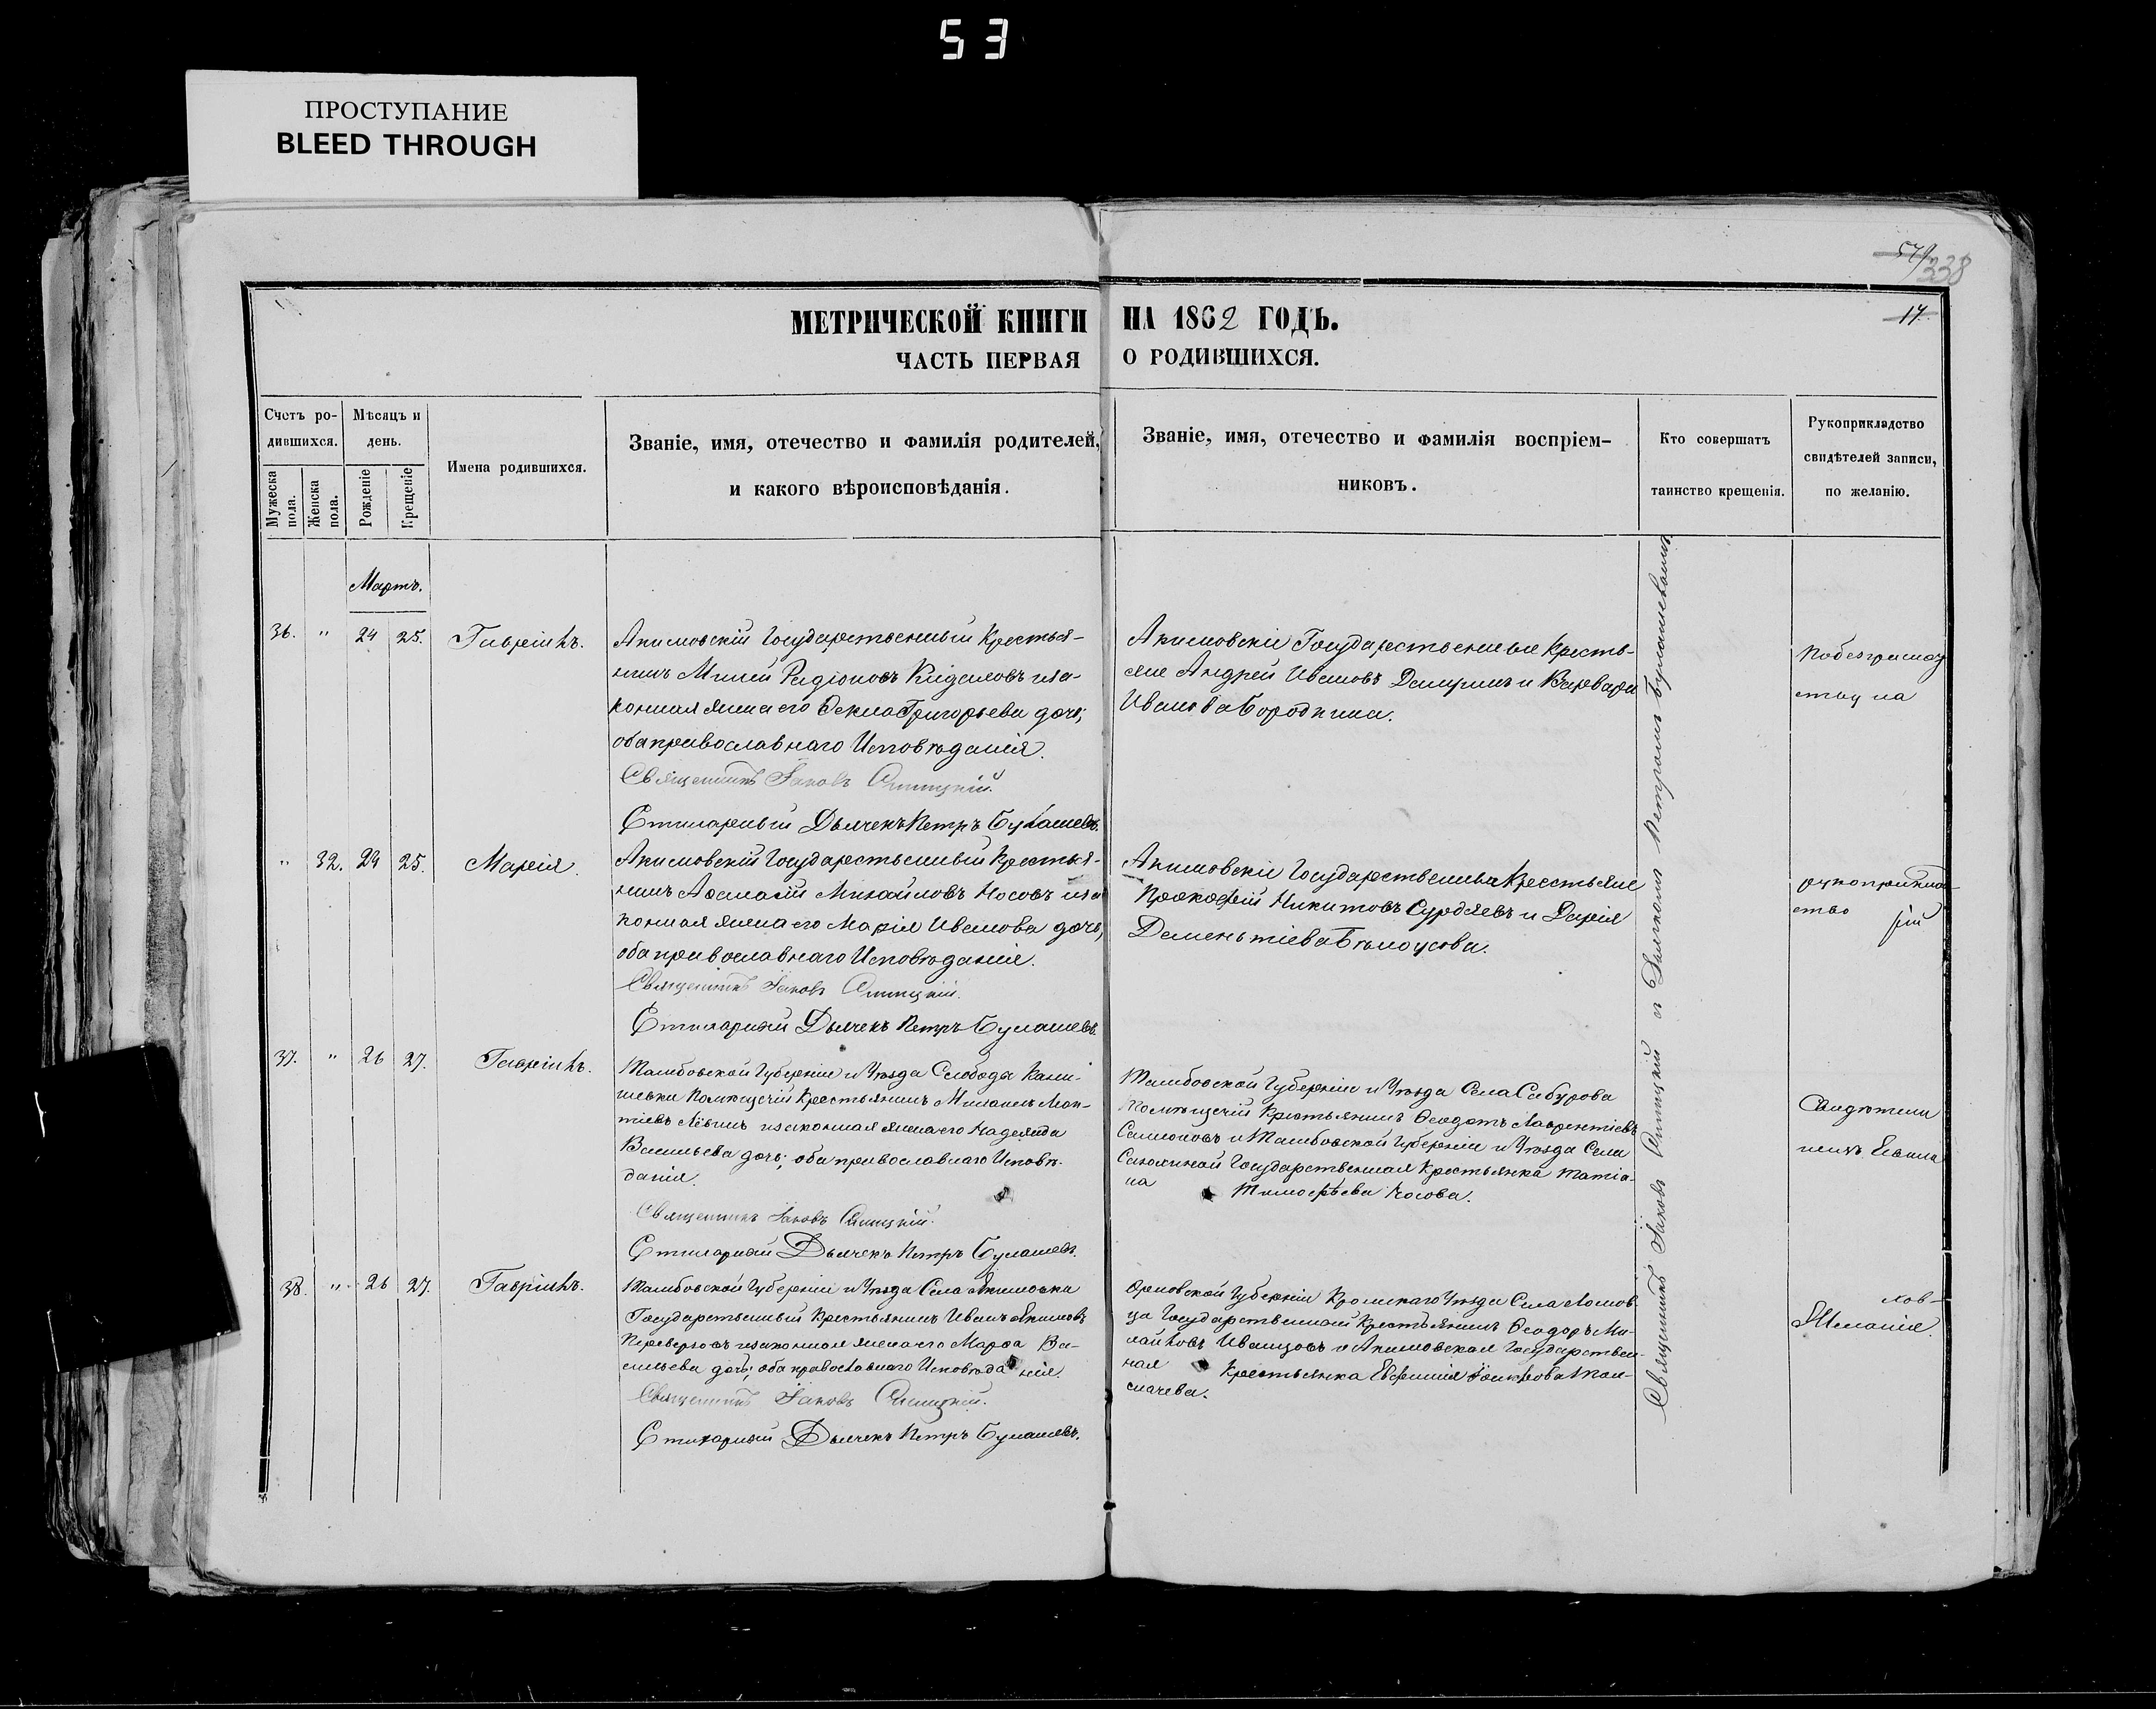 53
ПРОСТУПАНИЕ
BLEED THROUGH
579/338
17.
МЕТРИЧЕСКОЙ КНИГИ НА 1862 ГОДЪ.
ЧАСТЬ ПЕРВАЯ О РОДИВШИХСЯ.
Счетъ ро-
дившихся.
Мужеска
пола.
Женска
пола.
Мѣсяцъ и
день.
Рожденіе
Крещеніе
Имена родившихся.
Званіе, имя, отечество и фамилія родителей,
и какого вѣроисповѣданія.
Званіе, имя, отечество и фамилія воспріем-
никовъ.
Кто совершатъ
таинство крещенія.
Рукоприкладство
свидѣтелей записи,
по желанію.
Мартъ.
36. " 24 25. Гавріилъ.
Акимовскій Государственный Крестья-
нинъ Родіоновъ иза-
конная жена его Ѳекла Григорьева дочь;
оба православнаго Исповѣданія.
Священникъ Іаковъ
Стихарный Дьячекъ Петръ Булашевъ.
Акимовскіе Государственные Кресть-
яне Андрей Ивановъ и Варвара
Иванова Бородкина.
" 32. 24 25. Марія.
Акимовскій Государственный Крестья-
нинъ Аѳанасій Михайловъ Носовъ иза
конная жена его Марія Иванова дочь,
оба православнаго Исповѣданія.
Священникъ Іаковъ
Стихарный Дьячекъ Петръ Булашевъ.
Акимовскіе Государственные Крестьяне
Прокофій Никитовъ и Дарія
Дементіева Бѣлоусова.
рукоприклад-
ство
37. " 26 27. Гавріилъ.
Тамбовской Губерніи и Уѣзда Слобода
Помѣщечій Крестьянинъ Михаилъ Леон-
тіевъ Лёвинъ изаконная жена его Надежда
Васильева дочь; оба православнаго Исповѣ-
данія.
Священникъ Іаковъ
Стихарный Дьячекъ Петръ Булашевъ.
Тамбовской Губерніи и Уѣзда Села Сабурова
Помѣщечій Крестьянинъ Ѳеодотъ Лаврентіевъ
и Тамбовской Губерніи и Уѣзда Села
Государственная Крестьянка Татіа-
на Тимофѣева Носова.
Свидѣтели
38. " 26 27. Гавріилъ.
Тамбовской Губерніи и Уѣзда Села Акимовки
Государственный Крестьянинъ Иванъ Акимовъ
изаконная жена его Марѳа Ва-
сильева дочь; оба православнаго Исповѣданія.
Священникъ Іаковъ
Стихарный Дьячекъ Петръ Булашевъ.
Орловской Губерніи Кромскаго Уѣзда Села Ломов-
ца Государственный Крестьянинъ Ѳеодоръ Ми-
хайловъ Иванцовъ и Акимовская Государствен-
ная Крестьянка Евфимія Толмачева.
Священникъ Іаковъ съ Дьячкомъ Петромъ Булашевымъ